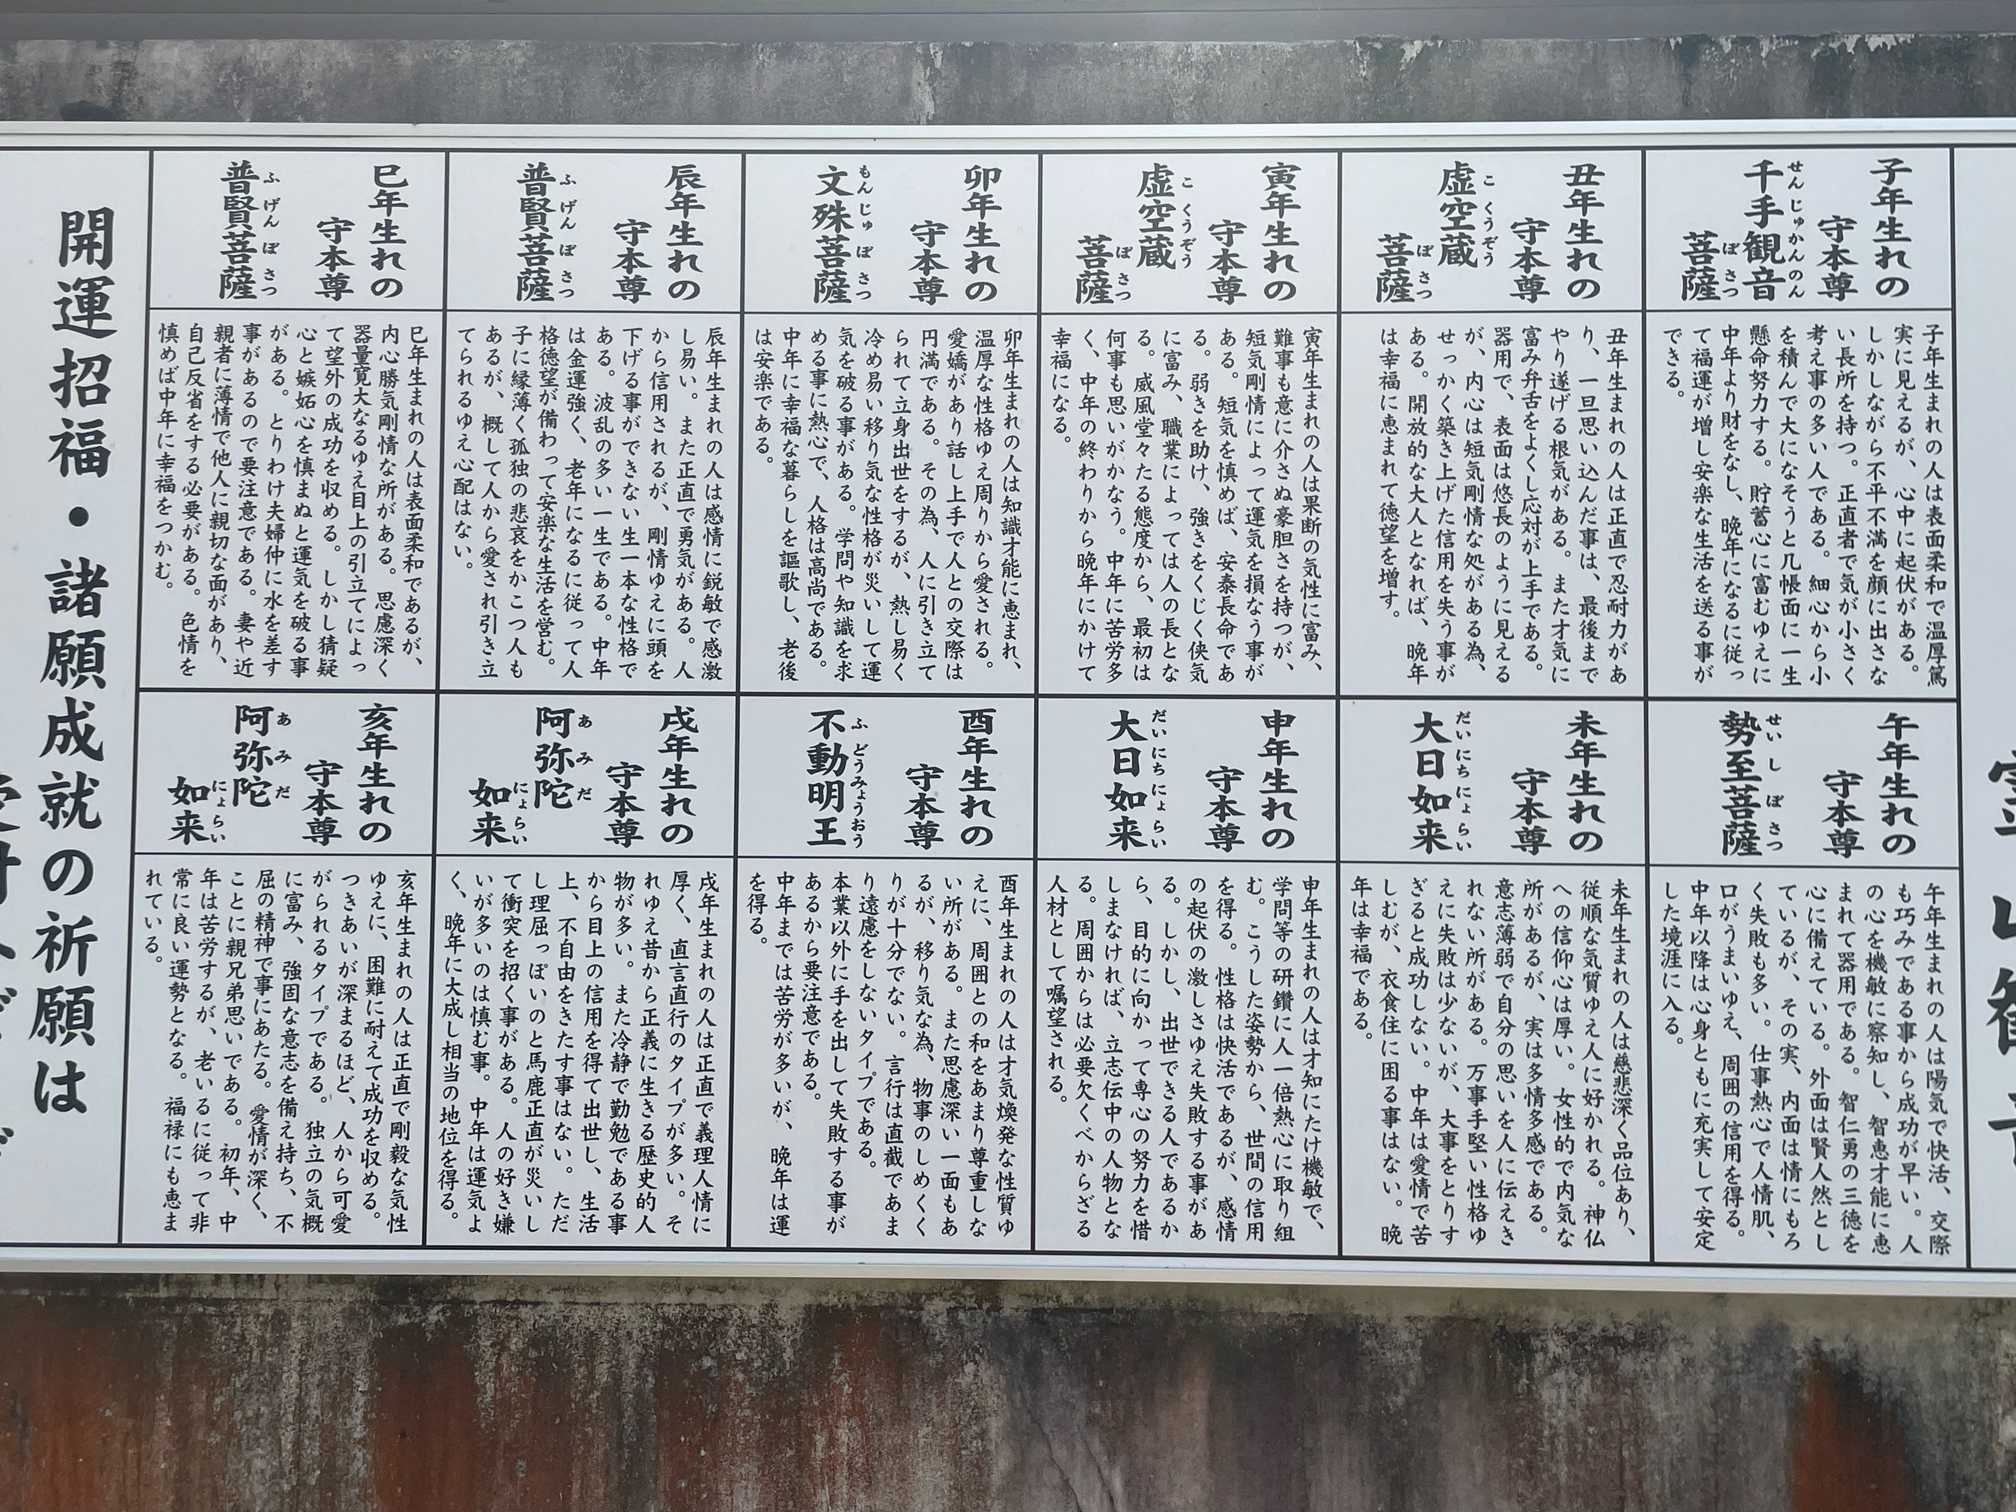 子年生れの
守本尊
せんじゅかんのん
千手観音
ぼさつ
菩薩
子年生まれの人は表面柔和で温厚篤
実に見えるが、心中に起伏がある。
しかしながら不平不満を顔に出さな
い長所を持つ。正直者で気が小さく
考え事の多い人である。細心から小
を積んで大になそうと几帳面に一生
懸命努力する。貯蓄心に富むゆえに
中年より財をなし、晩年になるに従っ
て福運が増し安楽な生活を送る事が
できる。
丑年生れの
守本尊
こくうぞう
虚空蔵
ぼさつ
菩薩
丑年生まれの人は正直で忍耐力があ
り、一旦思い込んだ事は、最後まで
やり遂げる根気がある。また才気に
富み弁舌をよくし応対が上手である。
器用で、表面は悠長のように見える
が、内心は短気剛情な処がある為、
せっかく築き上げた信用を失う事が
ある。開放的な大人となれば、晩年
は幸福に恵まれて徳望を増す。
寅年生れの
守本尊
こくうぞう
虚空蔵
ぼさつ
菩薩
寅年生まれの人は果断の気性に富み、
難事も意に介さぬ豪胆さを持つが、
短気剛情によって運気を損なう事が
ある。短気を慎めば、安泰長命であ
る。弱きを助け、強きをくじく侠気
に富み、職業によっては人の長とな
る。威風堂々たる態度から、最初は
何事も思いがかなう。中年に苦労多
く、中年の終わりから晩年にかけて
幸福になる。
卯年生れの
守本尊
もんじゅぼさつ
文殊菩薩
卯年生まれの人は知識才能に恵まれ、
温厚な性格ゆえ周りから愛される。
愛嬌があり話し上手で人との交際は
円満である。その為、人に引き立て
られて立身出世をするが、熱し易く
冷め易い移り気な性格が災いして運
気を破る事がある。学問や知識を求
める事に熱心で、人格は高尚である。
中年に幸福な暮らしを謳歌し、老後
は安楽である。
辰年生れの
守本尊
ふげんぼさつ
普賢菩薩
辰年生まれの人は感情に鋭敏で感激
し易い。また正直で勇気がある。人
から信用されるが、剛情ゆえに頭を
下げる事ができない生一本な性格で
ある。波乱の多い一生である。中年
は金運強く、老年になるに従って人
格徳望が備わって安楽な生活を営む。
子に縁薄く孤独の悲哀をかこつ人も
あるが、概して人から愛され引き立
てられるゆえ心配はない。
巳年生れの
守本尊
ふげんぼさつ
普賢菩薩
巳年生まれの人は表面柔和であるが、
内心勝気剛情な所がある。思慮深く
器量寛大なるゆえ目上の引立てによっ
て望外の成功を収める。しかし猜疑
心と嫉妬心を慎まぬと運気を破る事
がある。とりわけ夫婦仲に水を差す
事があるので要注意である。妻や近
親者に薄情で他人に親切な面があり、
自己反省をする必要がある。色情を
慎めば中年に幸福をつかむ。
午年生れの
守本尊
せいしぼさつ
勢至菩薩
午年生まれの人は陽気で快活、交際
も巧みである事から成功が早い。人
の心を機敏に察知し、智恵才能に恵
まれて器用である。智仁勇の三徳を
心に備えている。外面は賢人然とし
ているが、その実、内面は情にもろ
く失敗も多い。仕事熱心で人情肌、
口がうまいゆえ、周囲の信用を得る。
中年以降は心身ともに充実して安定
した境涯に入る。
未年生れの
守本尊
だいにちにょらい
大日如来
未年生まれの人は慈悲深く品位あり、
従順な気質ゆえ人に好かれる。神仏
への信仰心は厚い。女性的で内気な
所があるが、実は多情多感である。
意志薄弱で自分の思いを人に伝えき
れない所がある。万事手堅い性格ゆ
えに失敗は少ないが、大事をとりす
ぎると成功しない。中年は愛情で苦
しむが、衣食住に困る事はない。晩
年は幸福である。
申年生れの
守本尊
だいにちにょらい
大日如来
申年生まれの人は才知にたけ機敏で、
学問等の研鑽に人一倍熱心に取り組
む。こうした姿勢から、世間の信用
を得る。性格は快活であるが、感情
の起伏の激しさゆえ失敗する事があ
る。しかし、出世できる人であるか
ら、目的に向かって専心の努力を惜
しまなければ、立志伝中の人物とな
る。周囲からは必要欠くべからざる
人材として嘱望される。
酉年生れの
守本尊
ふどうみょうおう
不動明王
酉年生まれの人は才気煥発な性質ゆ
えに、周囲との和をあまり尊重しな
い所がある。また思慮深い一面もあ
るが、移り気な為、物事のしめくく
りが十分でない。言行は直截であま
り遠慮をしないタイプである。
本業以外に手を出して失敗する事が
あるから要注意である。
中年までは苦労が多いが、晩年は運
を得る。
戌年生れの
守本尊
あみだ
阿弥陀
にょらい
如来
戌年生まれの人は正直で義理人情に
厚く、直言直行のタイプが多い。そ
れゆえ昔から正義に生きる歴史的人
物が多い。また冷静で勤勉である事
から目上の信用を得て出世し、生活
上、不自由をきたす事はない。ただ
し理屈っぽいのと馬鹿正直が災いし
て衝突を招く事がある。人の好き嫌
いが多いのは慎む事。中年は運気よ
く、晩年に大成し相当の地位を得る。
亥年生れの
守本尊
あみだ
阿弥陀
にょらい
如来
亥年生まれの人は正直で剛毅な気性
ゆえに、困難に耐えて成功を収める。
つきあいが深まるほど、人から可愛
がられるタイプである。独立の気概
に富み、強固な意志を備え持ち、不
屈の精神で事にあたる。愛情が深く、
ことに親兄弟思いである。初年、中
年は苦労するが、老いるに従って非
常に良い運勢となる。福禄にも恵ま
れている。
開運招福・諸願成就の祈願は